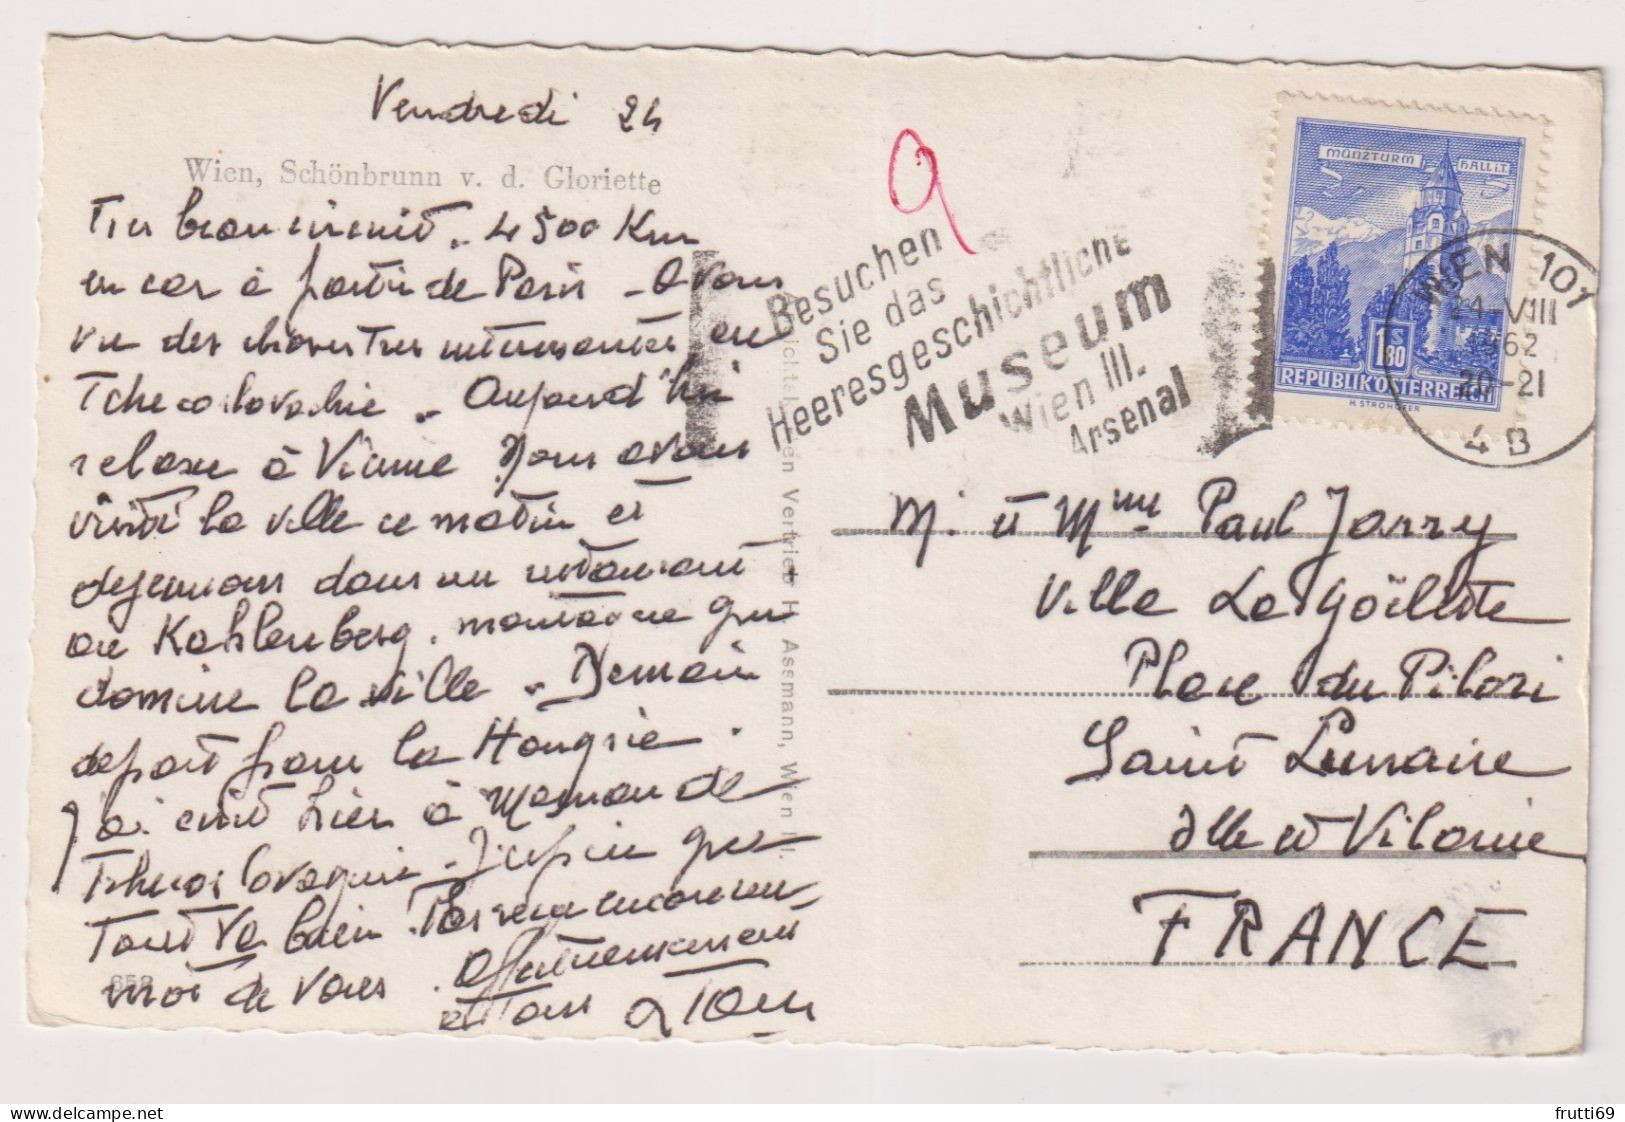 Vendredi 24
Wien, Schönbrunn v. d. Gloriette
Très beau circuit. 4500 Km
en car à partir de Paris - Avons
vu des choses très intéressantes en
Tchecoslovachie. Aujourd'hui
relaxe à Vienne Nous avons
visité la ville ce matin et
dejeunons dans un restaurant
au Kahlenberg. montagne qui
domine la ville - Demain
depart pour la Hongrie.
J'ai écrit hier à Maman de
Tchecoslovaquie - J'espère que
tout va bien.
moi de vous. Affectueusement
à tous
658
Vertrieb H. Assmann, Wien
9
Besuchen
Sie das
Heeresgeschichtliche
Museum
Wien III.
Arsenal
MÜNZTURM HALL i.T.
1.80
S
REPUBLIK ÖSTERREICH
H. STROHOFER
WIEN 101
24.VIII
1962
20-21
4 B
M. et Mme Paul Jarry
Villa La Goëlette
Place du Pilori
Saint Lunaire
Ille et Vilaine
FRANCE
frutti69